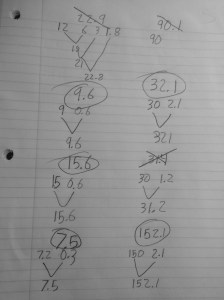 22.9 90.1
12 6 3 1.8 90
19
21
22.8
9.6 32.1
9 0.6 30 2.1
9.6 321
15.6
15 0.6 30 1.2
15.6 31.2
7.5 152.1
7.2 0.3 150 2.1
7.5 152.1